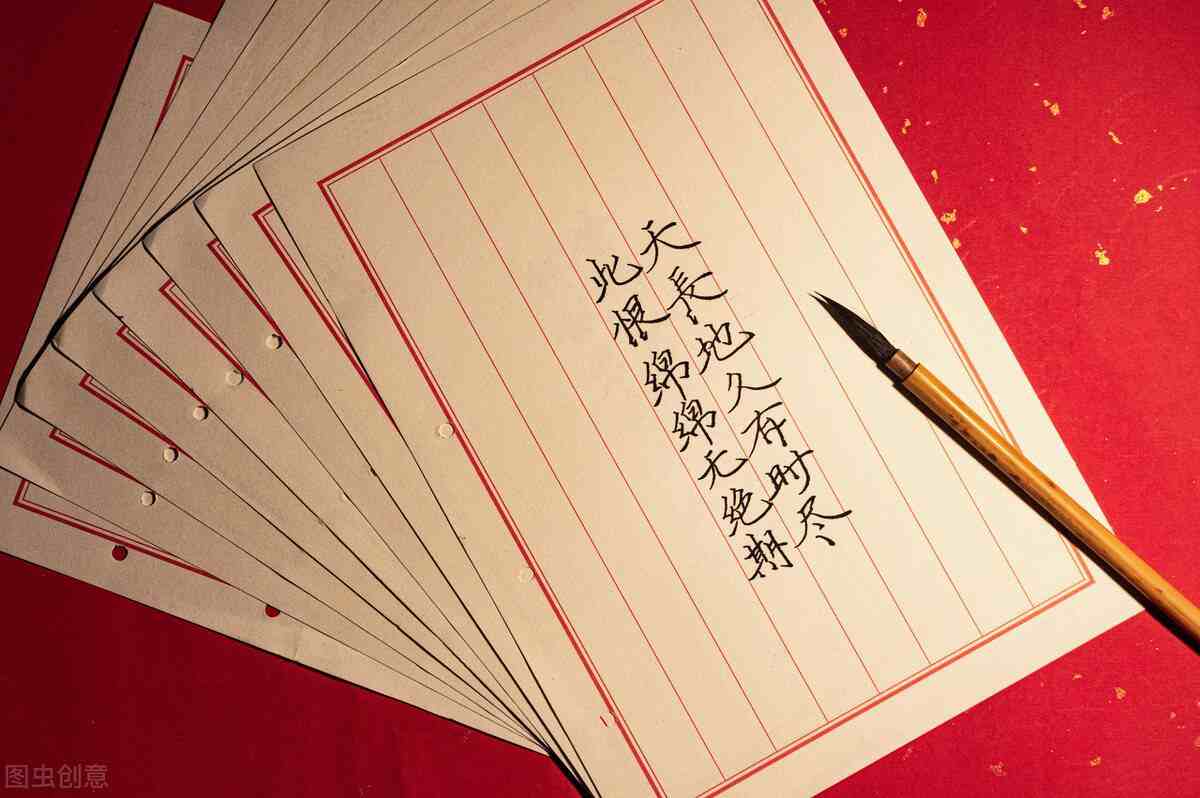 天長地久有时尽
此恨綿綿无绝期
图虫创意